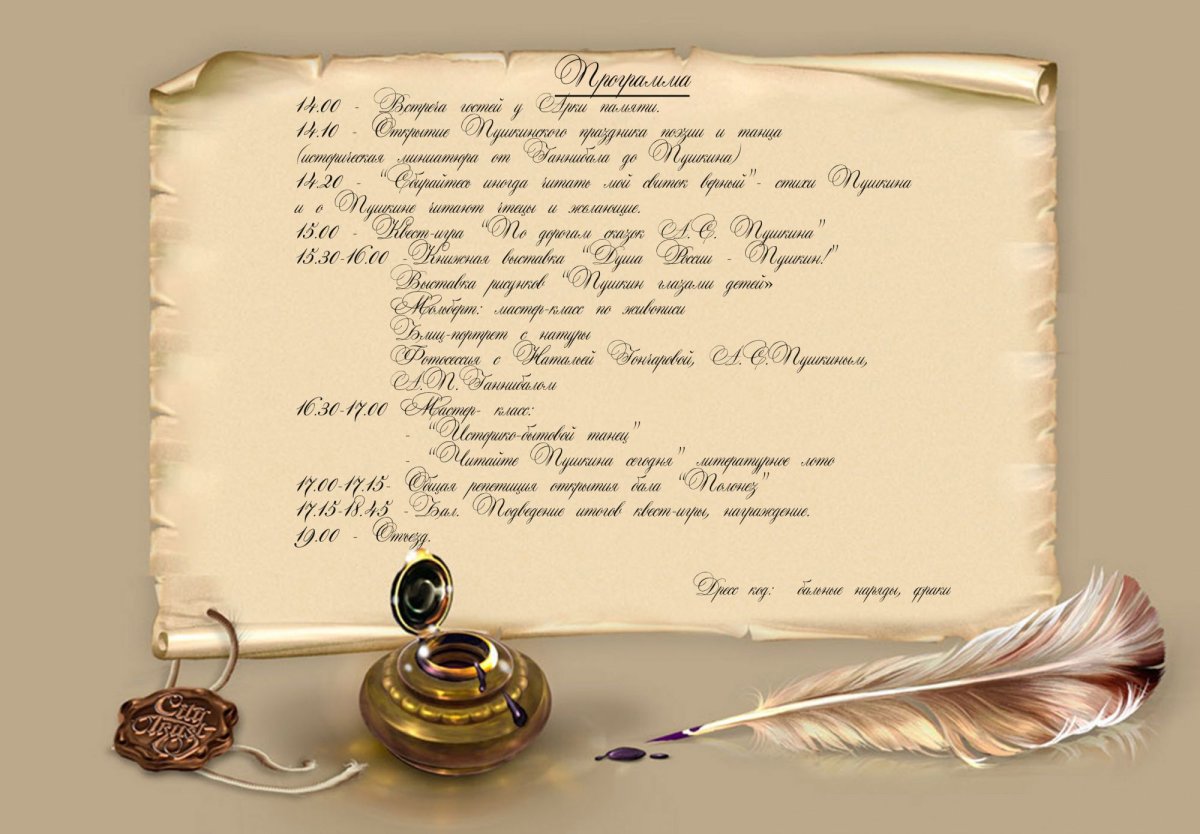 Программа
14.00 - Встреча гостей у Арки памяти.
14.10 - Открытие Пушкинского праздника поэзии и танца
(историческая миниатюра от Ганнибала до Пушкина)
14.20 - “Сбирайтесь иногда читать мой свиток верный”- стихи Пушкина
и о Пушкине читают чтецы и желающие.
15.00 - Квест-игра “По дорогам сказок А.С. Пушкина”
15.30-16.00 -Книжная выставка “Душа России - Пушкин!”
Выставка рисунков “Пушкин глазами детей»
Мольберт: мастер-класс по живописи
Блиц-портрет с натуры
Фотосессия с Натальей Гончаровой, А.С.Пушкиным,
А.П.Ганнибалом
16.30-17.00 Мастер- класс:
- “Историко-бытовой танец”
- “Читайте Пушкина сегодня” литературное лото
17.00-17.15- Общая репетиция открытия бала “Полонез”
17.15-18.45 -Бал. Подведение итогов квест-игры, награждение.
19.00 - Отъезд.
Дресс код: бальные наряды, фраки
City
Trust